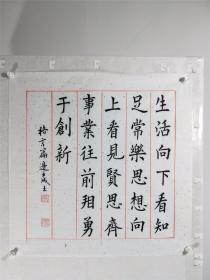 生活向下看知
足常樂思想向
上看見賢思齊
事業往前勇
于創新
格言篇